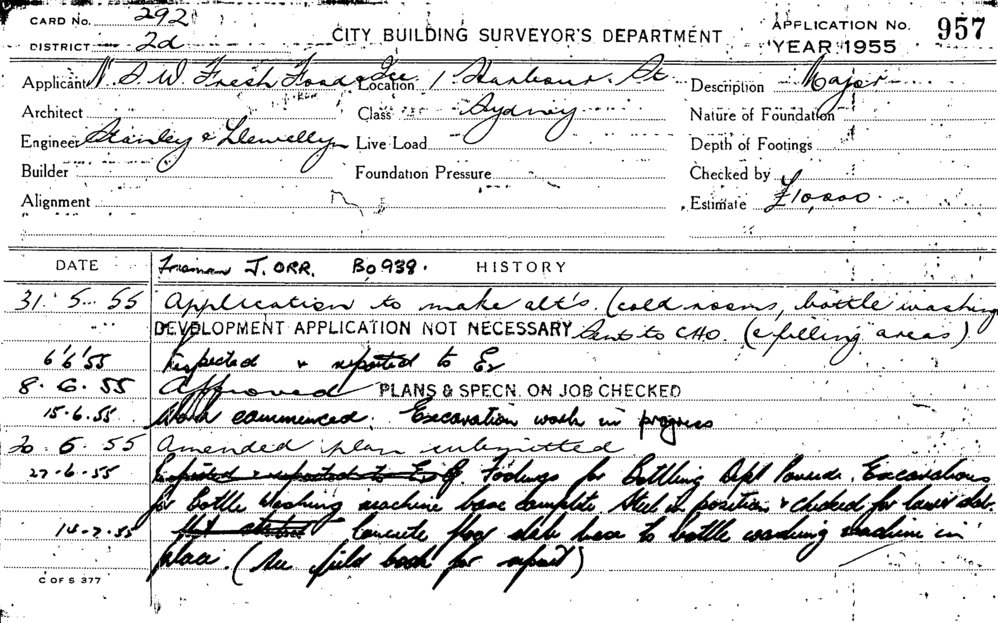 CARD No. 292
DISTRICT 2d
CITY BUILDING SURVEYOR'S DEPARTMENT
APPLICATION No. 957
YEAR 1955
Applicant N.S.W. Fresh Food & Ice Location 1 Harbour St Description Major
Architect Class Sydney Nature of Foundation
Engineer Stanley & Llewellyn Live Load Depth of Footings
Builder Foundation Pressure Checked by
Alignment Estimate £10,000
DATE Foreman J. ORR. BO 939. HISTORY
31.5.55 Application to make alt's. (cold rooms, bottle washing
DEVELOPMENT APPLICATION NOT NECESSARY Sent to CHO. (& filling areas)
6/6/55 Inspected & reported to Er
8.6.55 Approved PLANS & SPECN. ON JOB CHECKED
15.6.55 Work commenced. Excavation work in progress
20.6.55 Amended plan submitted
27.6.55 Inspected & reported to Er Footings for Bottling Dept Poured. Excavations
for bottle washing machine base complete Steel in position & checked for lower slab.
Concrete floor slab base to bottle washing machine in
place. (See field book for report)
C OF S 377